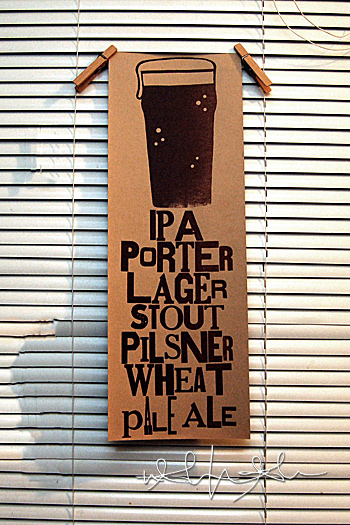 IPA
PORTER
LAGER
STOUT
PILSNER
WHEAT
PALE ALE